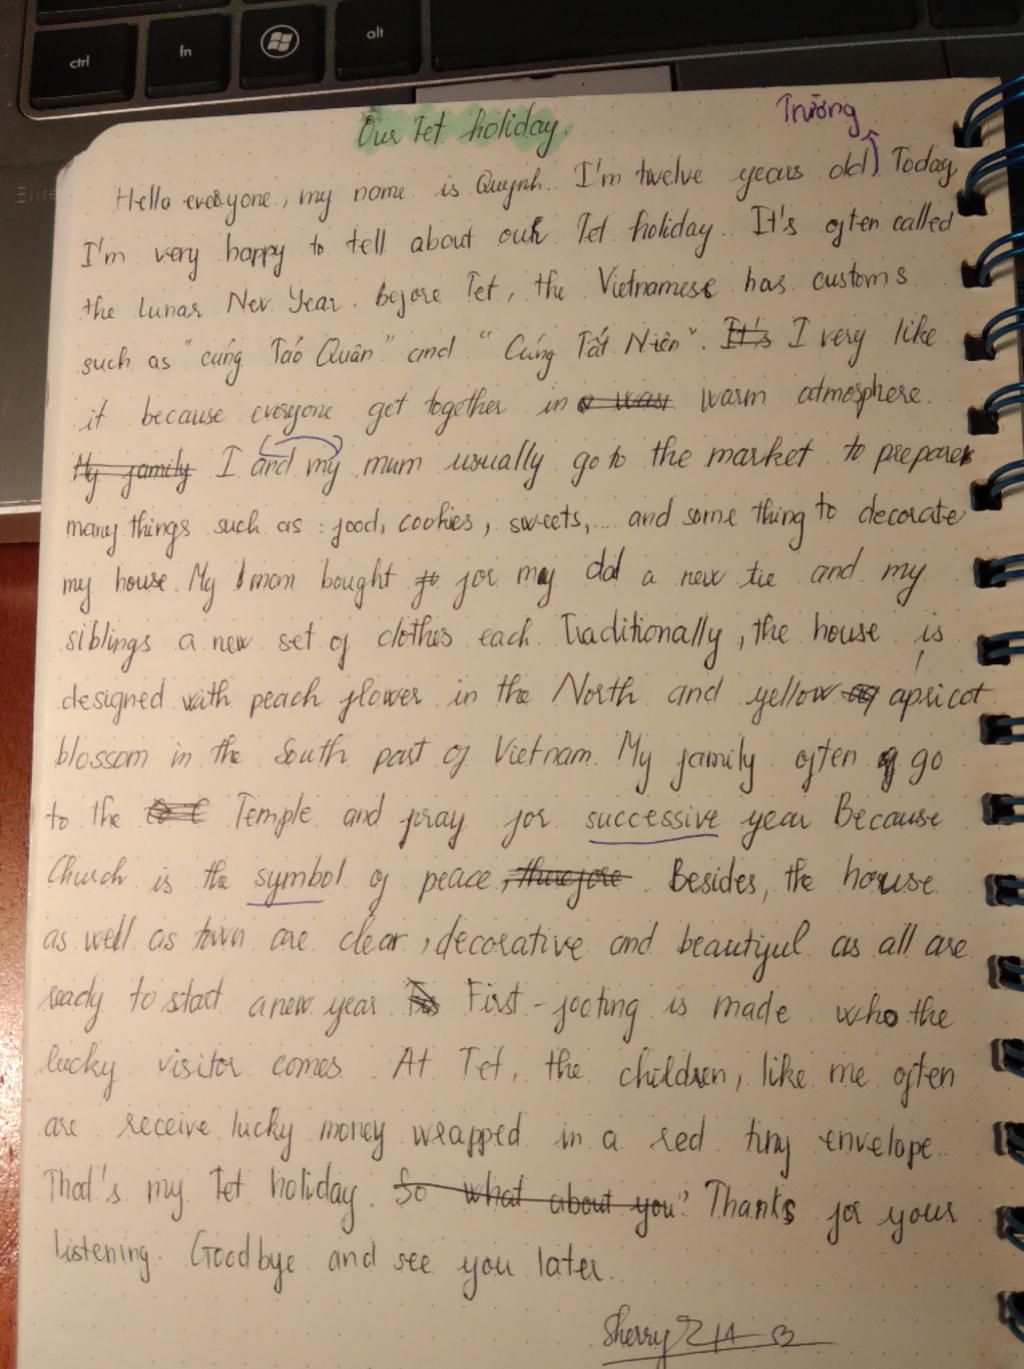 ctrl
fn
alt
Elite
Our Tet holiday.
Trường
Hello everyone, my name is Quynh. I'm twelve years old. Today
I'm very happy to tell about our Tet holiday. It's often called
the lunar New Year. before Tet, the Vietnamese has customs
such as "cúng Táo Quân" and "Cúng Tất Niên". It's I very like
it because everyone get together in warm atmosphere.
My family I and my mum usually go to the market to prepare
many things such as : food, cookies, sweets,... and some thing to decorate
my house. My mom bought for my dad a new tie and my
siblings a new set of clothes each. Traditionally, the house is
designed with peach flower in the North and yellow apricot
blossom in the South part of Vietnam. My family often go
to the Temple and pray for successive year Because
Church is the symbol of peace, therefore. Besides, the house
as well as town are clear, decorative and beautiful as all are
ready to start a new year. First-footing is made who the
lucky visitor comes. At Tet, the children, like me often
are receive lucky money wrapped in a red tiny envelope.
That's my Tet holiday. So what about you? Thanks for your
listening. Goodbye and see you later.
Sherry